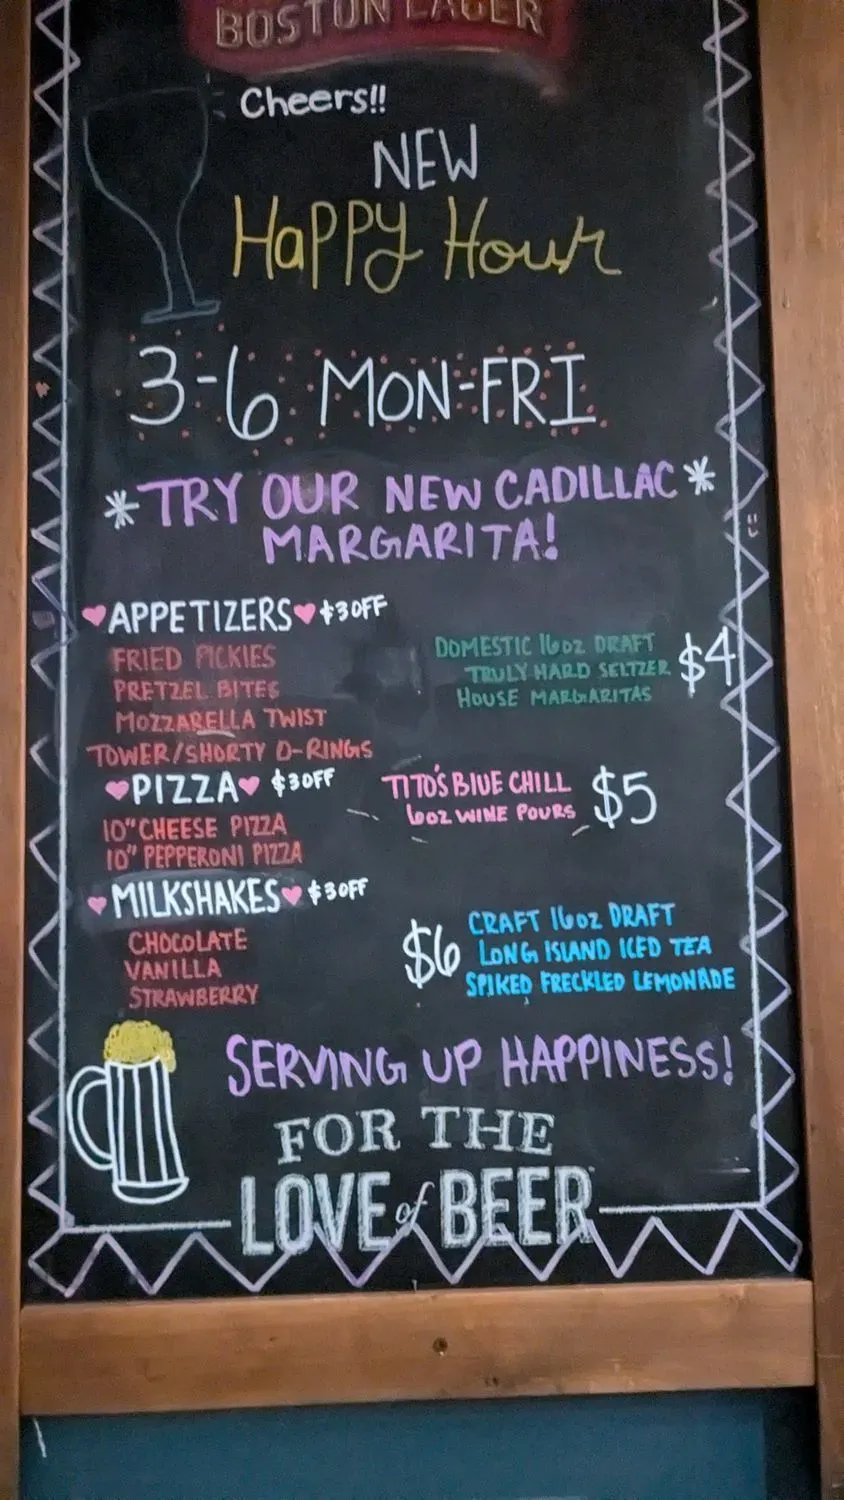 BOSTON LAGER
Cheers!!
NEW
HAPPY HOUR
3-6 MON-FRI
*TRY OUR NEW CADILLAC*
MARGARITA!
APPETIZERS $3 OFF
FRIED PICKIES
PRETZEL BITES
MOZZARELLA TWIST
TOWER/SHORTY O-RINGS
PIZZA $3 OFF
10" CHEESE PIZZA
10" PEPPERONI PIZZA
MILKSHAKES $3 OFF
CHOCOLATE
VANILLA
STRAWBERRY
DOMESTIC 16oz DRAFT
TRULY HARD SELTZER $4
HOUSE MARGARITAS
TITO'S BLUE CHILL $5
6oz WINE POURS
CRAFT 16oz DRAFT
$6 LONG ISLAND ICED TEA
SPIKED FRECKLED LEMONADE
SERVING UP HAPPINESS!
FOR THE
LOVE of BEER